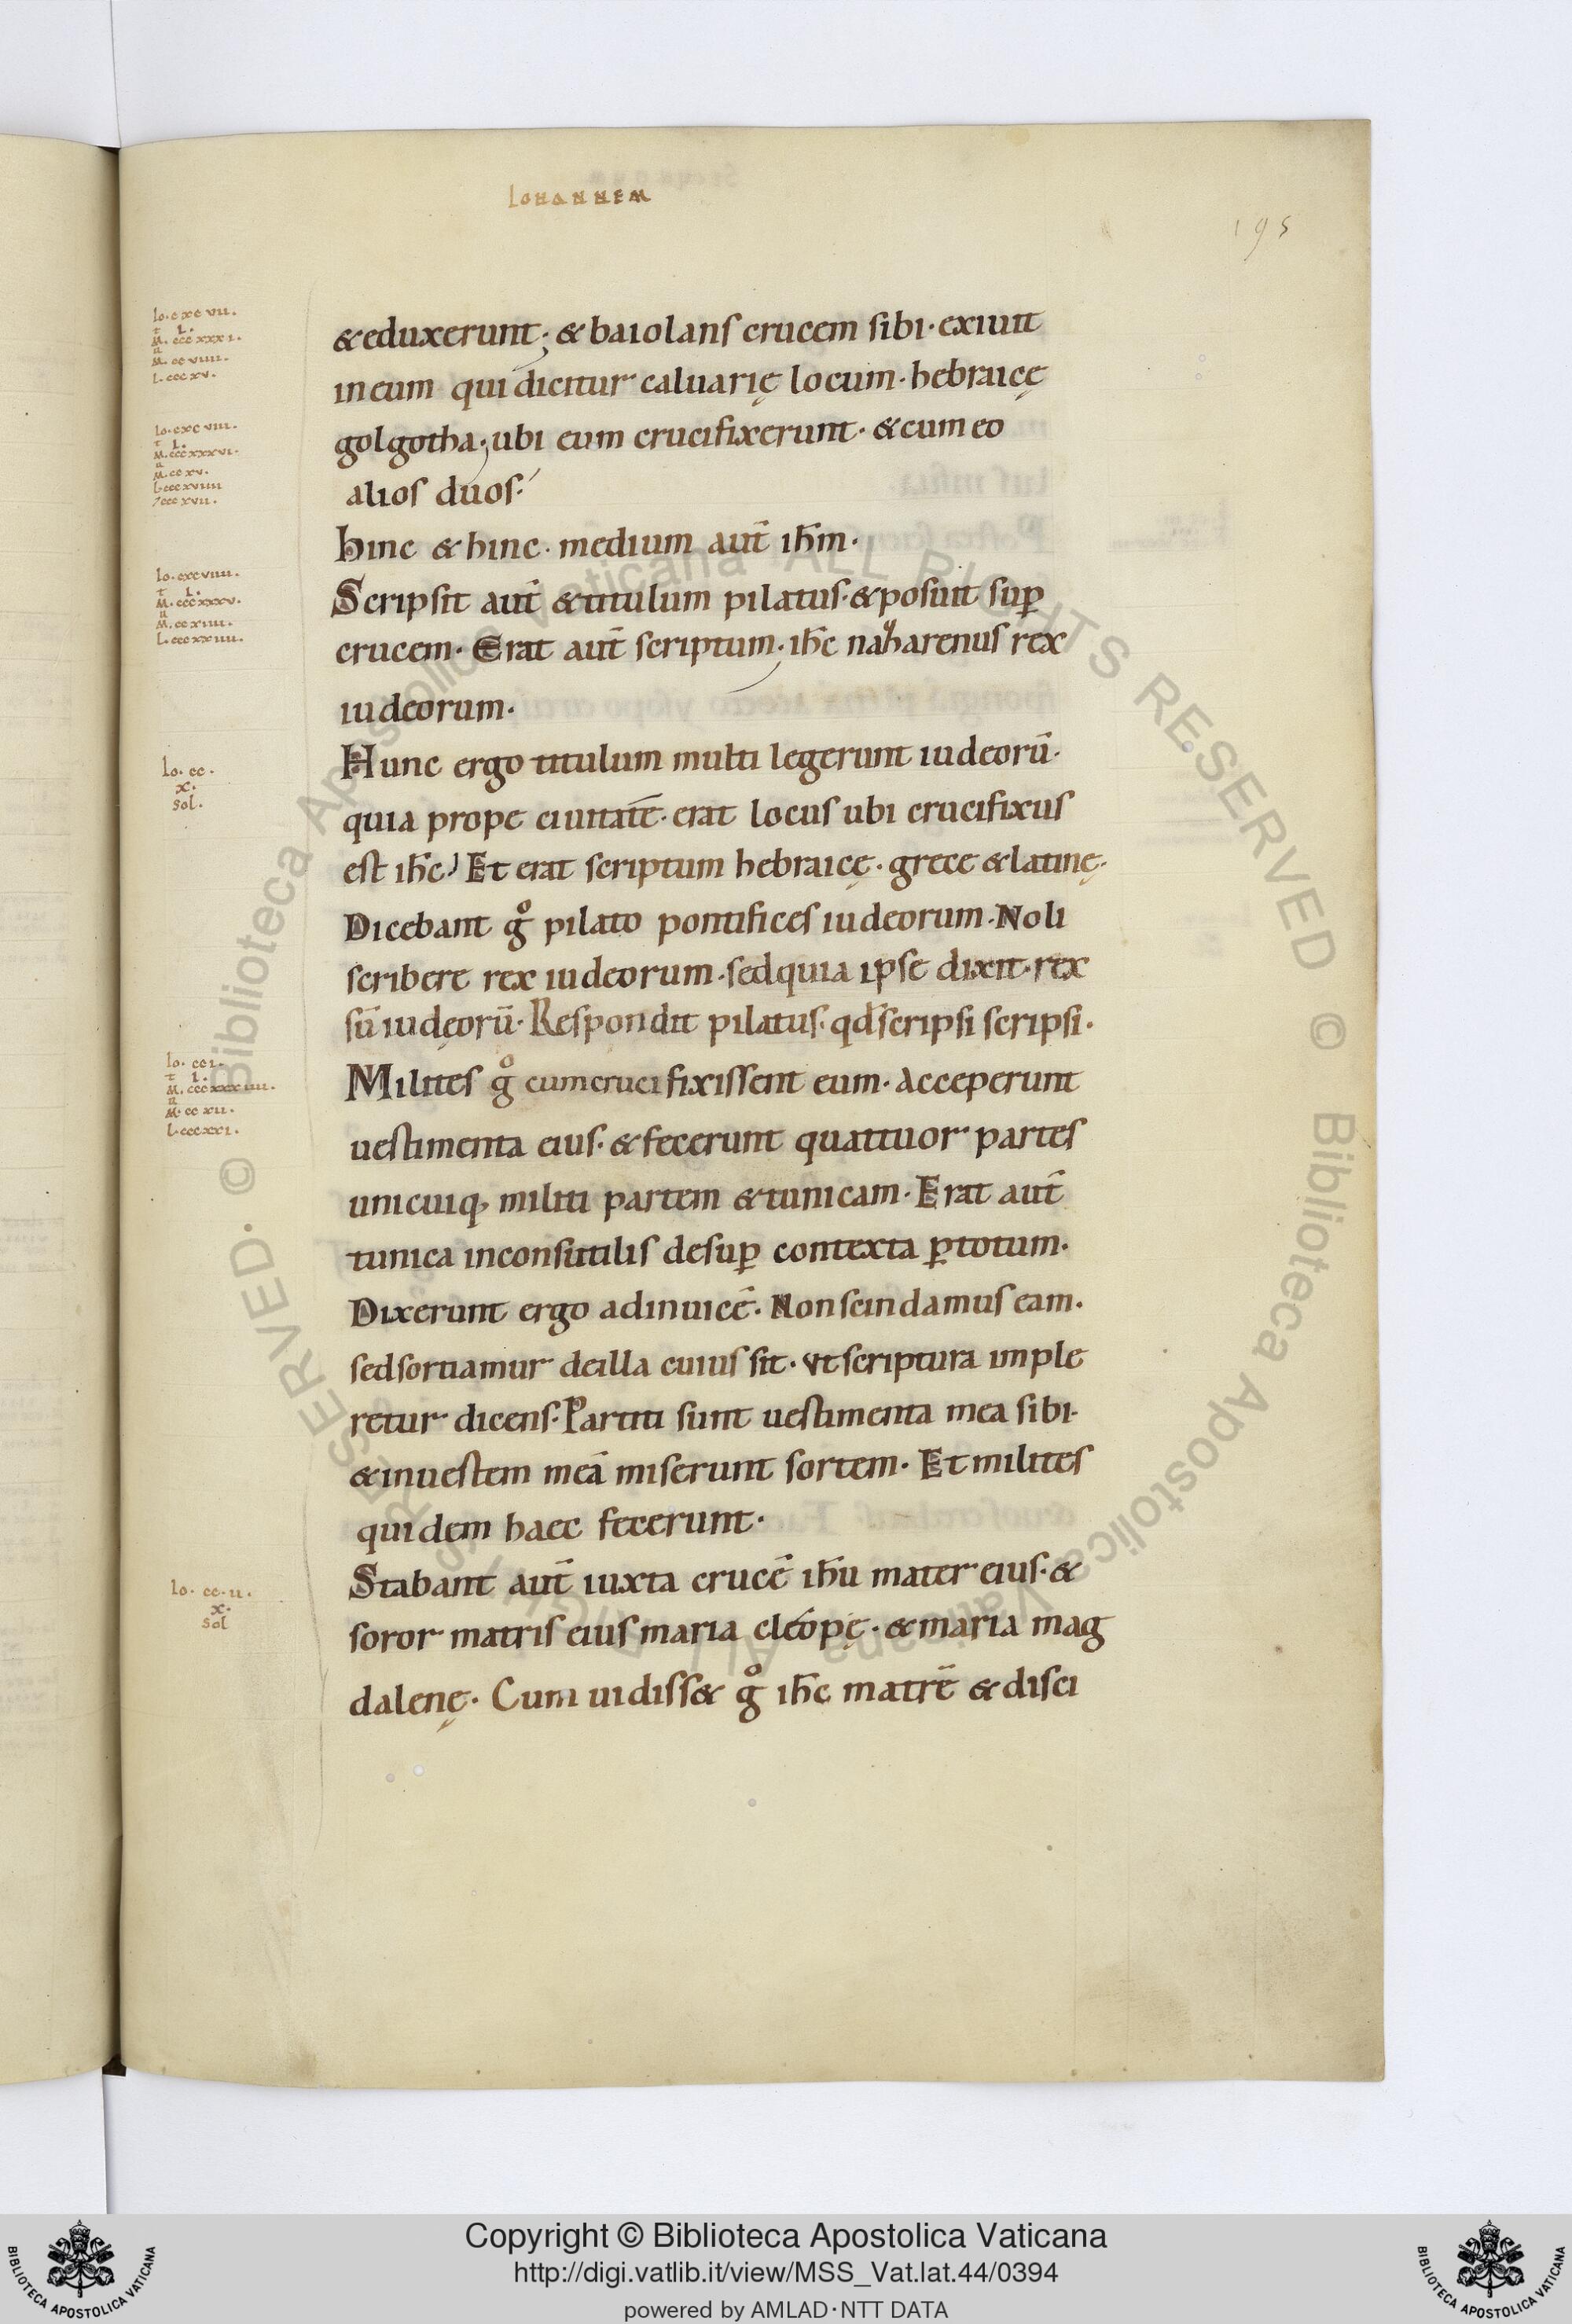 Iohannem
195
Io. cxc vii.
t I.
M. ccc xxx i.
M. cc viiii.
L. ccc xv.
& eduxerunt; & baiolans crucem sibi· exiuit
in eum qui dicitur caluarię locum· hebraicę
Io. cxc viii.
t I.
M. ccc xxx vi.
M. cc xv.
L. ccc xviiii
golgotha; ubi eum crucifixerunt· & cum eo
alios duos·
hinc & hinc· medium aut̄ ih̄m·
Io. cxc viiii.
t I.
M. ccc xxxv.
M. cc xiiii.
L. ccc xx iiii.
Scripsit aut̄ & titulum pilatus· & posuit sup̲
crucem· Erat aut̄ scriptum· ih̄c nazharenus rex
iudeorum·
Io. cc.
x.
sol.
Hunc ergo titulum multi legerunt iudeorū·
quia prope ciuitatē· erat locus ubi crucifixus
est ih̄c· Et erat scriptum hebraicę· grece & latinę·
Dicebant gͦ pilato pontifices iudeorum· Noli
scribere rex iudeorum· sed quia ipse dixit· rex
sū iudęorū· Respondit pilatus· qd̄ scripsi scripsi·
Io. cc i.
t I.
M. ccc xxx iiii.
M. cc xii.
L. ccc xx i.
Milites gͦ cum crucifixissent eum· Acceperunt
uestimenta eius· & fecerunt quattuor partes
unicuiq, militi partem & tunicam· Erat aut̄
tunica inconsutilis desup̲ contexta p̲ totum·
Dixerunt ergo adinuicē· Non scindamus eam·
sed sortiamur de illa cuius sit· ut scriptura imple
retur dicens· Partiti sunt uestimenta mea sibi·
& in uestem meā miserunt sortem· Et milites
quidem haec fecerunt·
Io. cc. ii.
x.
sol
Stabant aut̄ iuxta crucē ih̄u mater eius· &
soror matris eius maria cleópę· & maria mag
dalenę· Cum uidiss& gͦ ih̄c matrē & disci
© Biblioteca Apostolica Vaticana ALL RIGHTS RESERVED
Copyright © Biblioteca Apostolica Vaticana
http://digi.vatlib.it/view/MSS_Vat.lat.44/0394
powered by AMLAD·NTT DATA
BIBLIOTECA APOSTOLICA VATICANA
BIBLIOTECA APOSTOLICA VATICANA